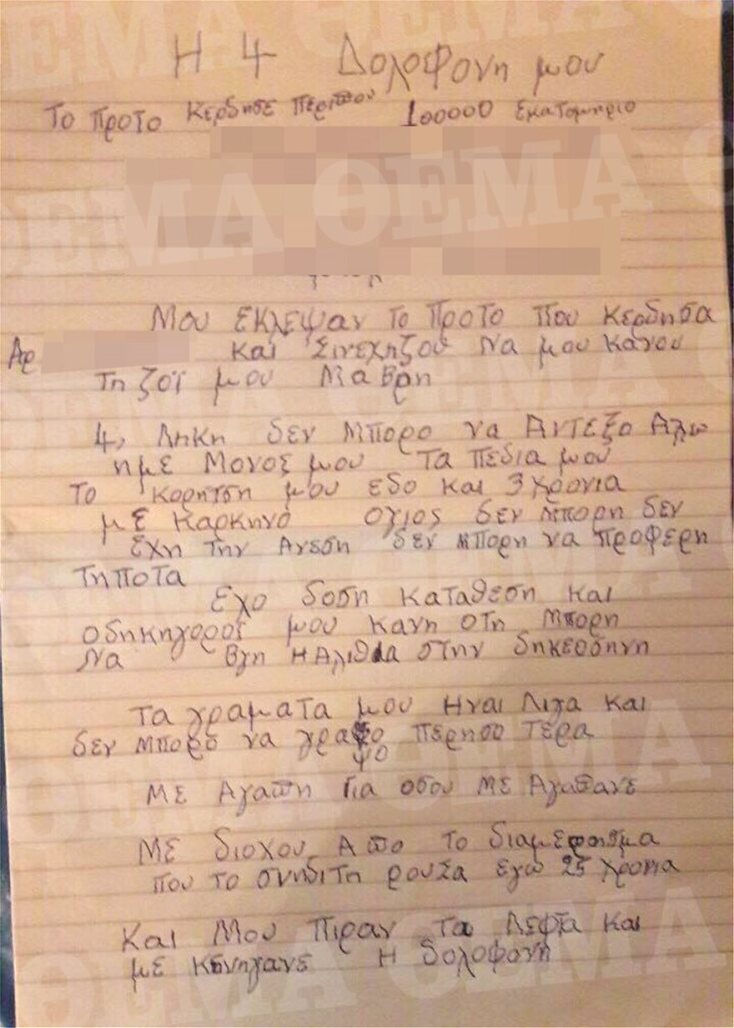 Η 4 Δολοφονη μου
Το Προτο Κερδησε Περιπου 100000 Εκατομηριο
Μου ΕΚλεψαν το Προτο που κερδησα
Αρ και Σινεχηζου Να μου Κανου
Τη Ζοϊ μου Μαβρη
4, Ληκη δεν Μπορο να Αντεξο Αλω
ημε Μονος μου Τα Πεδια μου
Το Κορητση μου εδο και 3 χρονια
με Καρκηνο ογιος δεν Μπορη δεν
Εχη την Ανεση δεν Μπορη να προφερη
τηποτα
Εχο δοση καταθεση και
οδηκηγορος μου κανη οτη Μπορη
Να Βγη Η Αλιθια στην δηκεοδηνη
Τα γραματα μου Ηναι Λιγα και
δεν Μπορο να γραψο περησο τερα
ψο
Με Αγαπη Για οσου Με Αγαπανε
Με διοχου Απο το διαμερησμα
που το σηνδιτη ρουσα εγω 25 χρονια
Και Μου Πιραν τα Λεφτα και
με Κηνηγανε Η δολοφονη
ΘΕΜΑ ΘΕΜΑ